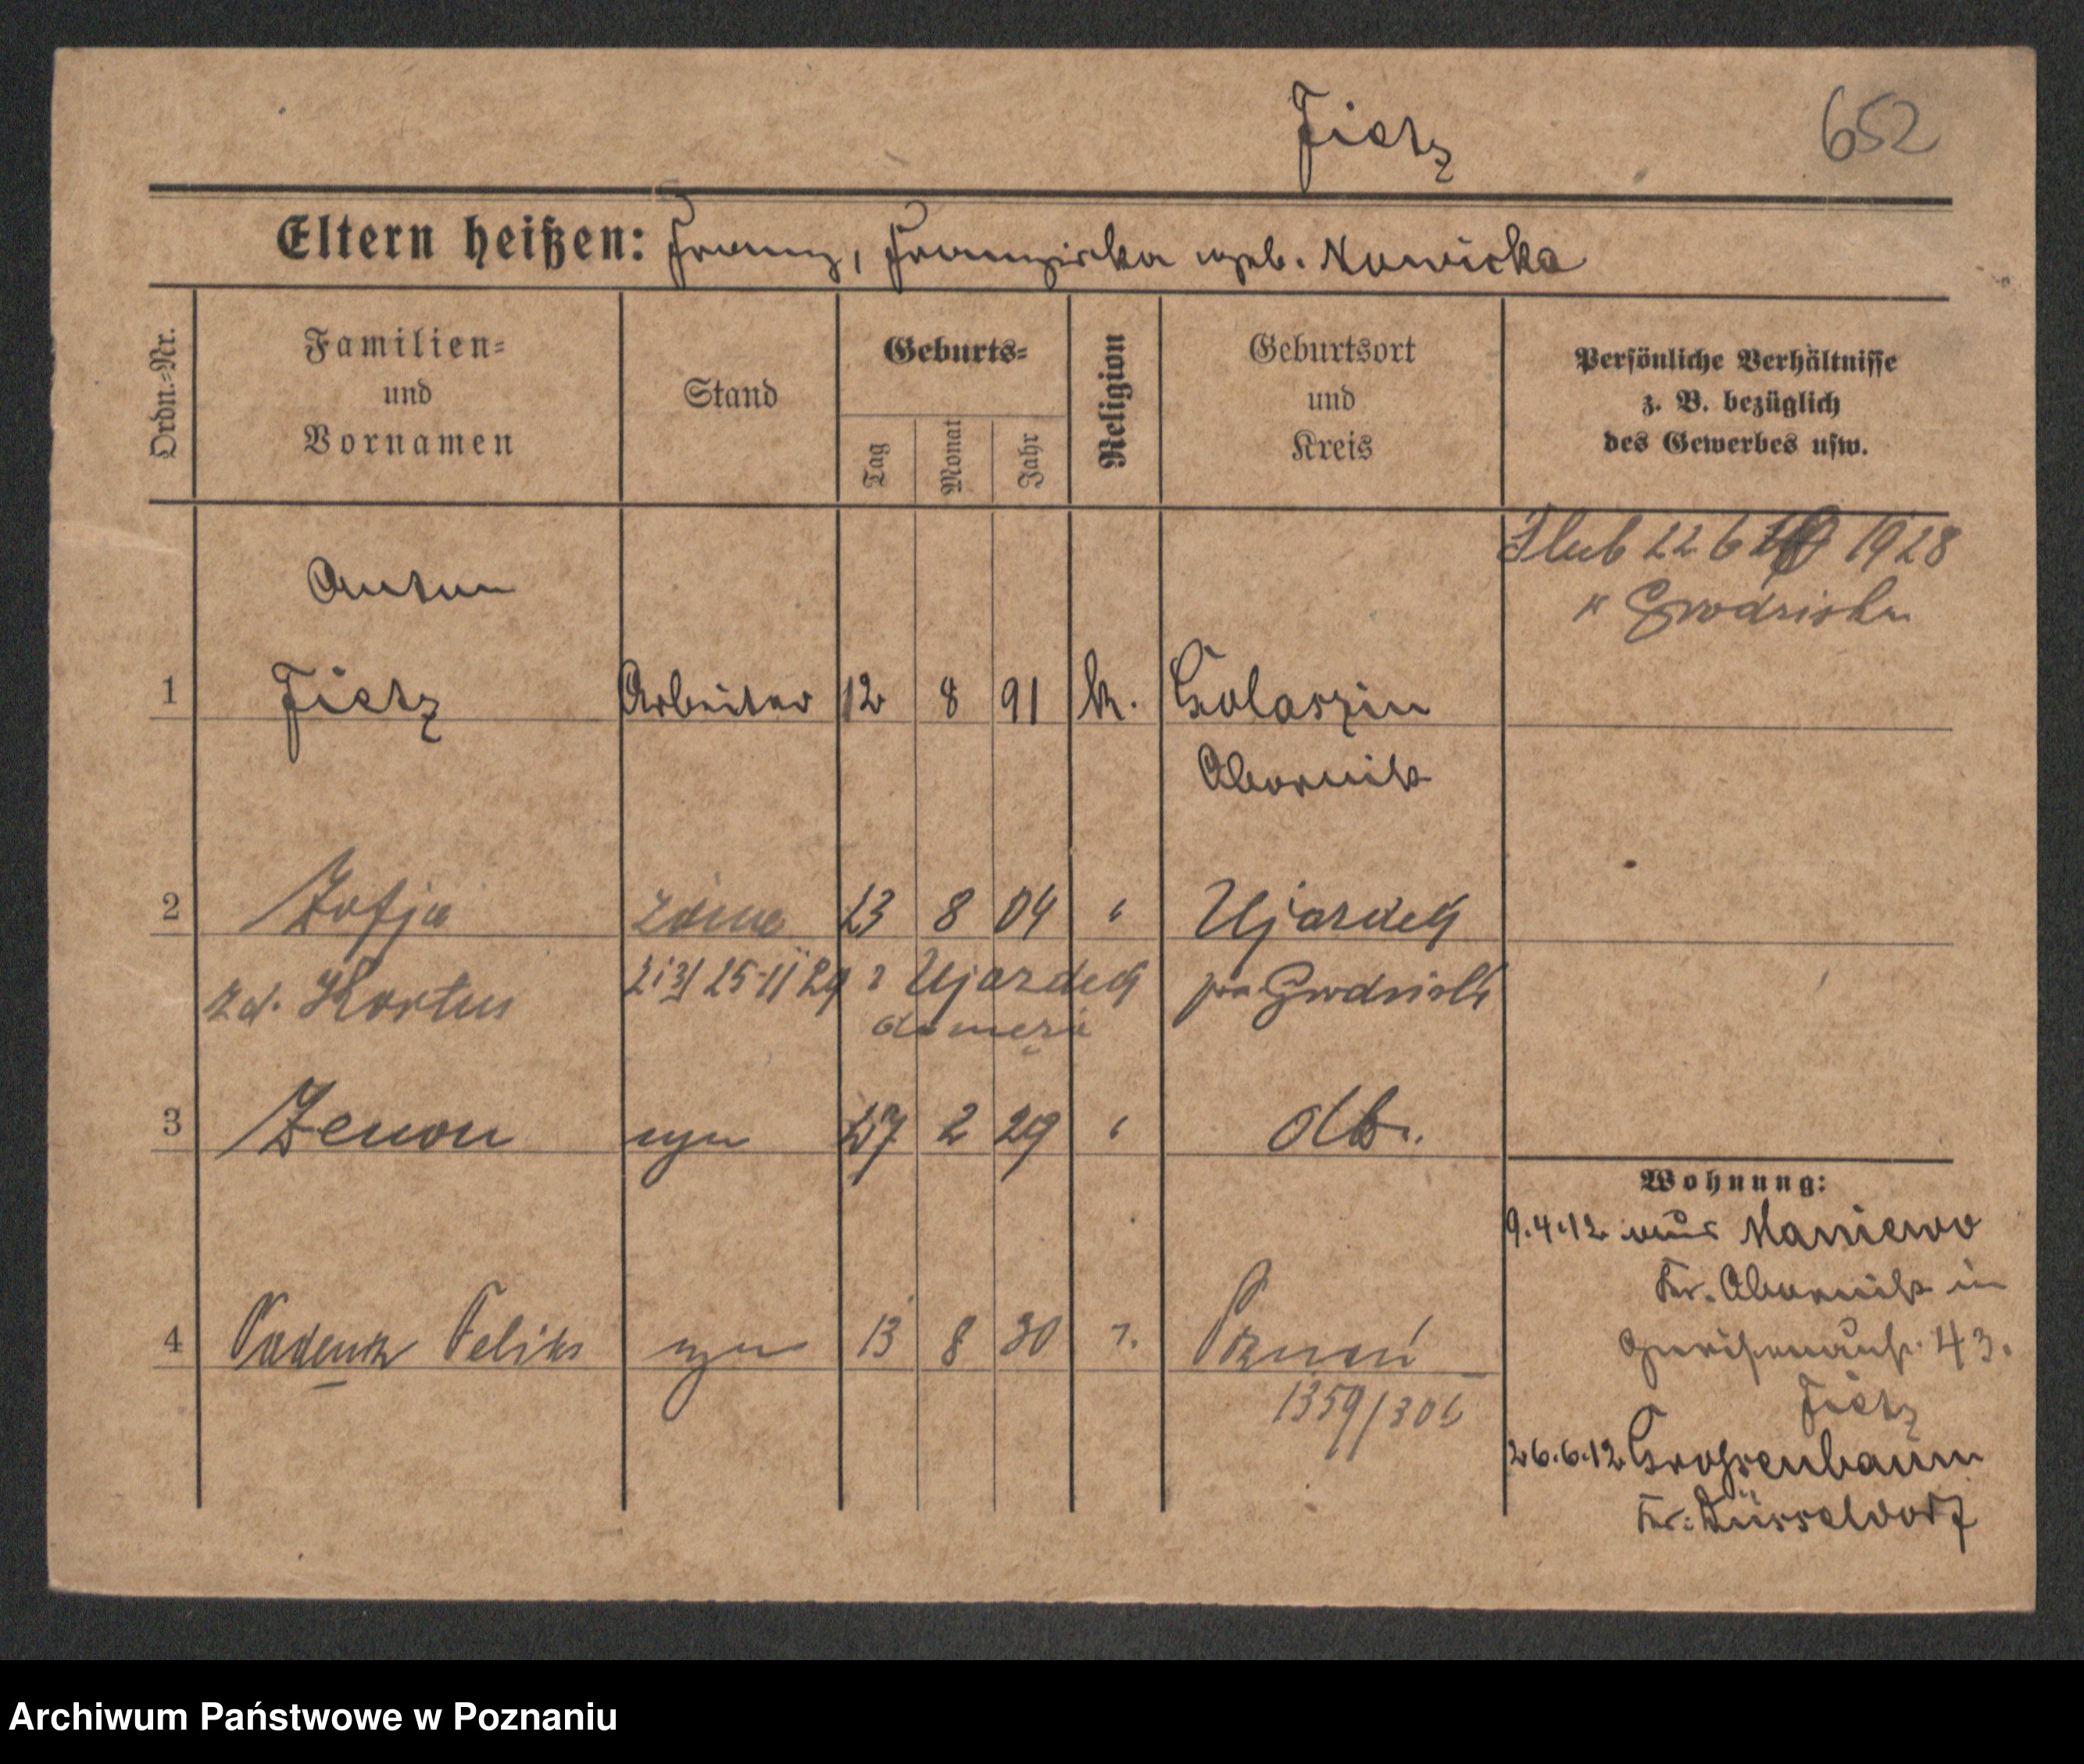 Fietz
652
Eltern heißen: Franz, Franziska geb. Nowicka
Ordn.=Nr.
Familien=
und
Vornamen
Stand
Geburts=
Tag
Monat
Jahr
Religion
Geburtsort
und
Kreis
Persönliche Verhältnisse
z. B. bezüglich
des Gewerbes usw.
Ślub 22 6 1928
w Grodzisku
Anton
1 Fietz Arbeiter 12 8 91 k. Golaszin
Obornik
2 Zofja żona 23 8 04 " Ujazdek
zd. Kortus 25 11 29 z Ujazdek
do męża
Grodzisk
3 Zenon syn 27 2 29 " dto.
Wohnung:
9.4.12 aus Maniewo
Kr. Obornik in
Gneisenaustr. 43.
Fietz
4 Tadeusz Feliks syn 13 8 30 Poznań
1359/30
26.6.12 Grossenbaum
Kr. Düsseldorf
Archiwum Państwowe w Poznaniu